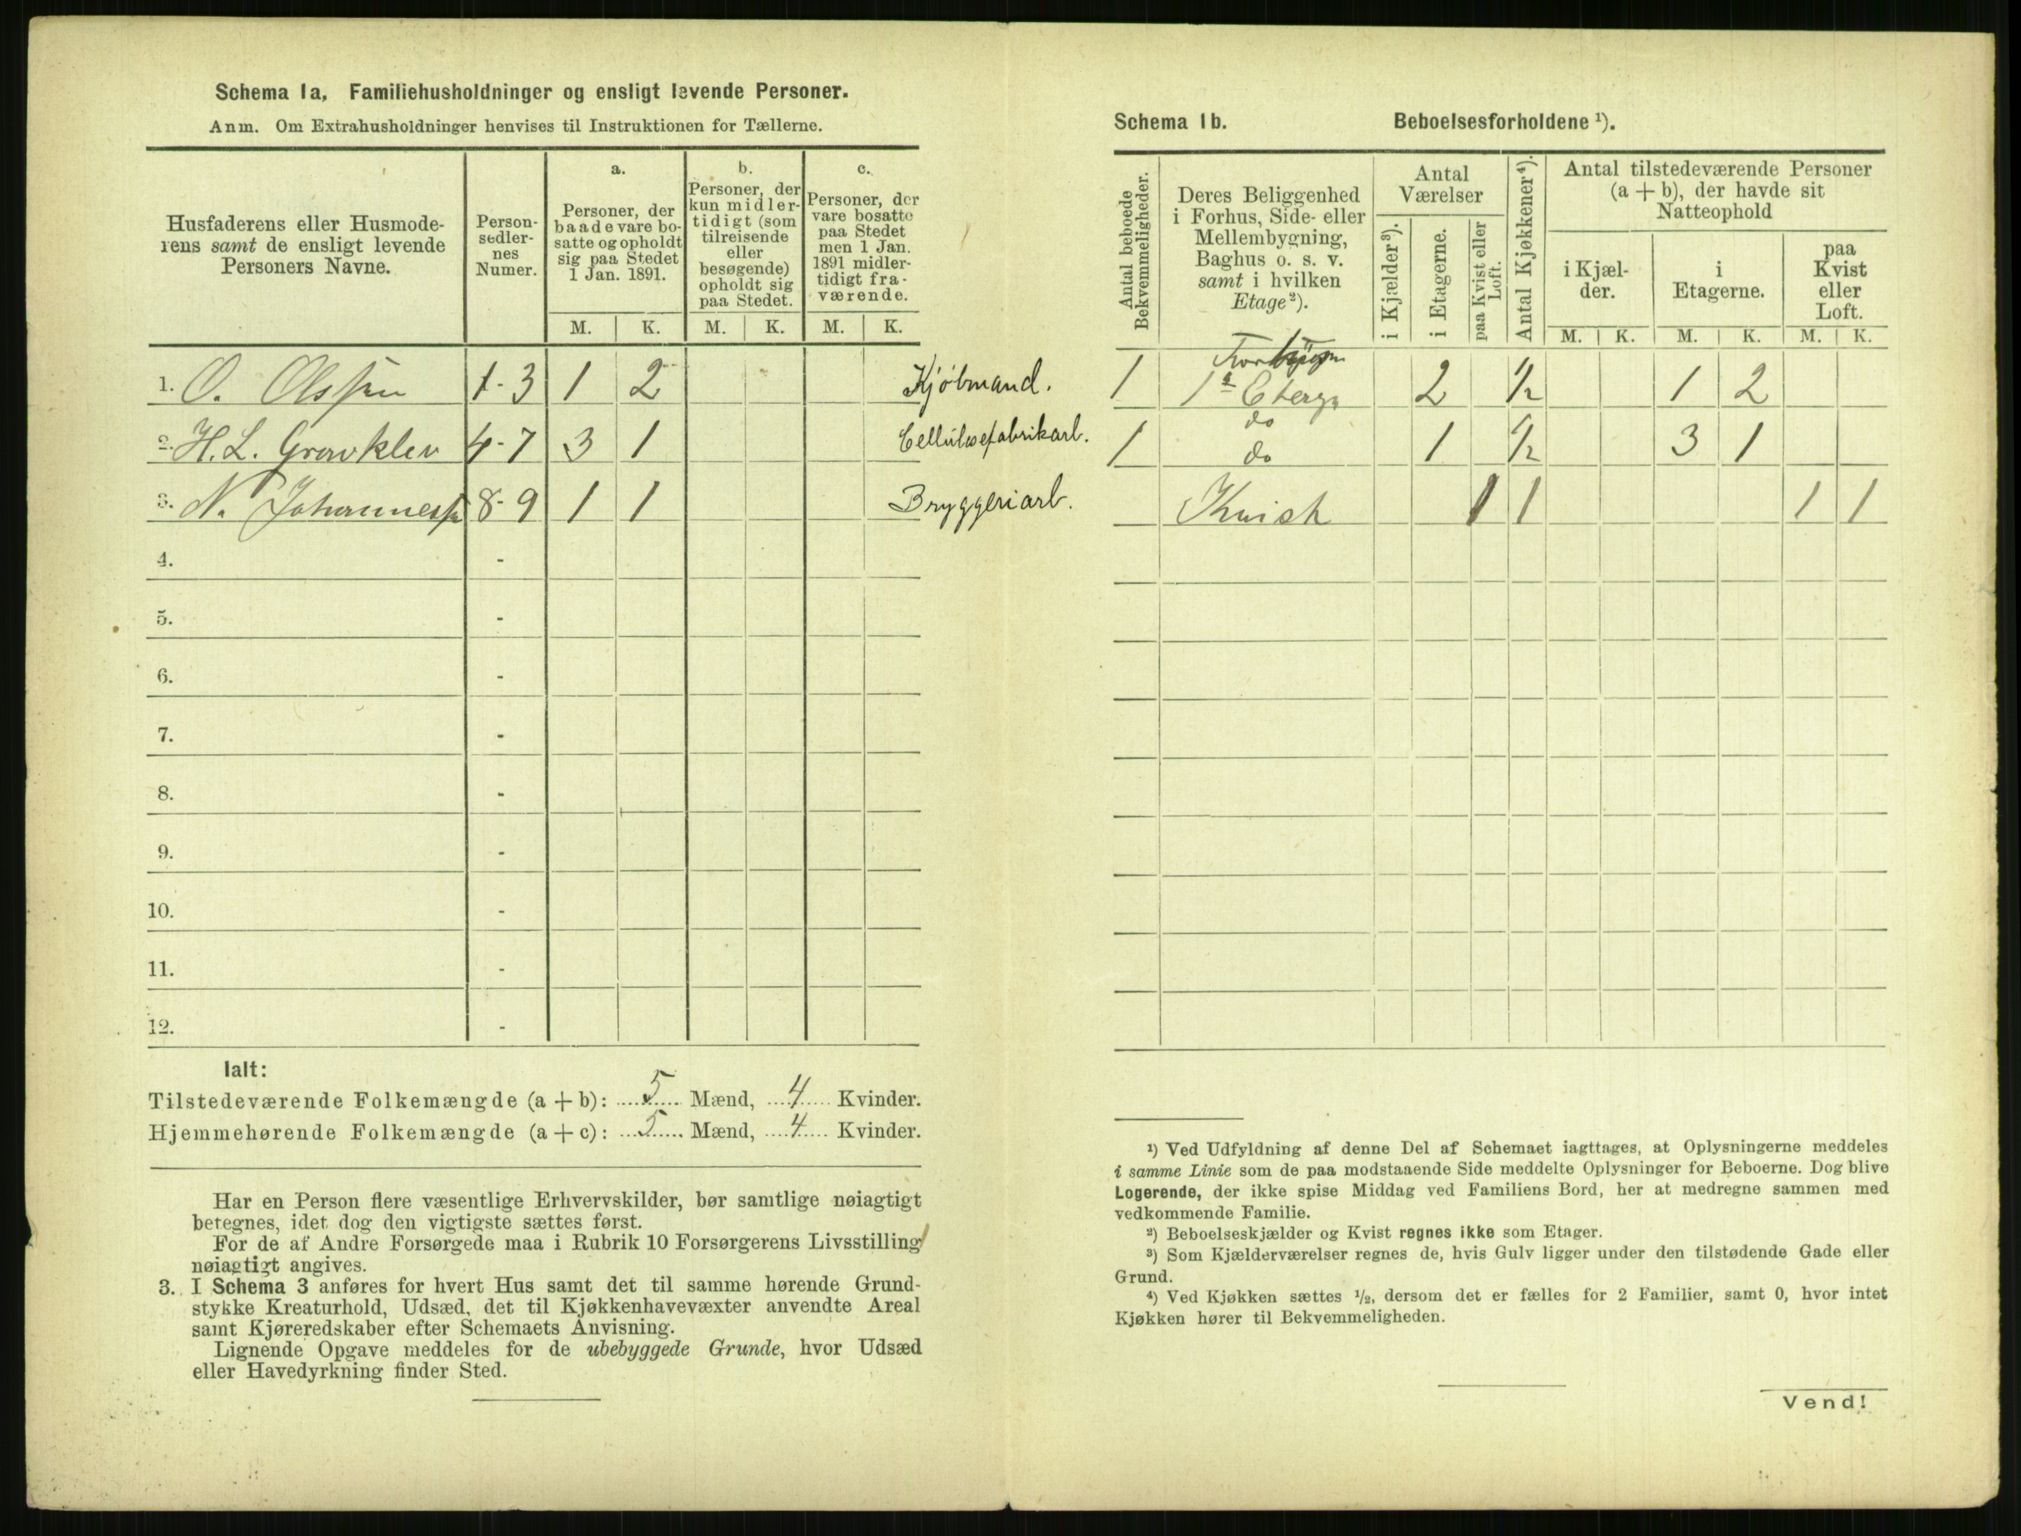 Schema 1a, Familiehusholdninger og ensligt levende Personer.
Anm. Om Extrahusholdninger henvises til Instruktionen for Tællerne.
Husfaderens eller Husmode-
rens samt de ensligt levende
Personers Navne.
Person-
sedler-
nes
Numer.
a.
Personer, der
baade vare bo-
satte og opholdt
sig paa Stedet
1 Jan. 1891.
b.
Personer, der
kun midler-
tidigt (som
tilreisende
eller
besøgende)
opholdt sig
paa Stedet.
c.
Personer, der
vare bosatte
paa Stedet
men 1 Jan.
1891 midler-
tidigt fra-
værende.
M. K. M. K. M. K.
1. O. Olssen 1-3 1 2 Kjöbmand.
2. H. L. Gravklev 4-7 3 1 Cellulosefabrikarb.
3. N. Johannessen 8-9 1 1 Bryggeriarb.
4. -
5. -
6. -
7. -
8. -
9. -
10. -
11. -
12. -
Ialt:
Tilstedeværende Folkemængde (a + b): 5 Mænd, 4 Kvinder.
Hjemmehørende Folkemængde (a + c): 5 Mænd, 4 Kvinder.
Har en Person flere væsentlige Erhvervskilder, bør samtlige nøiagtigt
betegnes, idet dog den vigtigste sættes først.
For de af Andre Forsørgede maa i Rubrik 10 Forsørgerens Livsstilling
nøiagtigt angives.
3. I Schema 3 anføres for hvert Hus samt det til samme hørende Grund-
stykke Kreaturhold, Udsæd, det til Kjøkkenhavevæxter anvendte Areal
samt Kjøreredskaber efter Schemaets Anvisning.
Lignende Opgave meddeles for de ubebyggede Grunde, hvor Udsæd
eller Havedyrkning finder Sted.
Schema 1b. Beboelsesforholdene ¹).
Antal beboede
Bekvemmeligheder.
Deres Beliggenhed
i Forhus, Side- eller
Mellembygning,
Baghus o. s. v.
samt i hvilken
Etage ²).
Antal
Værelser
i Kjælder ³).
i Etagerne.
paa Kvist eller
Loft.
Antal Kjøkkener ⁴).
Antal tilstedeværende Personer
(a + b), der havde sit
Natteophold
i Kjæl-
der.
i
Etagerne.
paa
Kvist
eller
Loft.
M. K. M. K. M. K.
1 1ª Eterge 2 ½ 1 2
do
1 do 1 ½ 3 1
Kvist 1 1 1 1
¹) Ved Udfyldning af denne Del af Schemaet iagttages, at Oplysningerne meddeles
i samme Linie som de paa modstaaende Side meddelte Oplysninger for Beboerne. Dog blive
Logerende, der ikke spise Middag ved Familiens Bord, her at medregne sammen med
vedkommende Familie.
²) Beboelseskjælder og Kvist regnes ikke som Etager.
³) Som Kjælderværelser regnes de, hvis Gulv ligger under den tilstødende Gade eller
Grund.
⁴) Ved Kjøkken sættes ½, dersom det er fælles for 2 Familier, samt 0, hvor intet
Kjøkken hører til Bekvemmeligheden.
Vend!